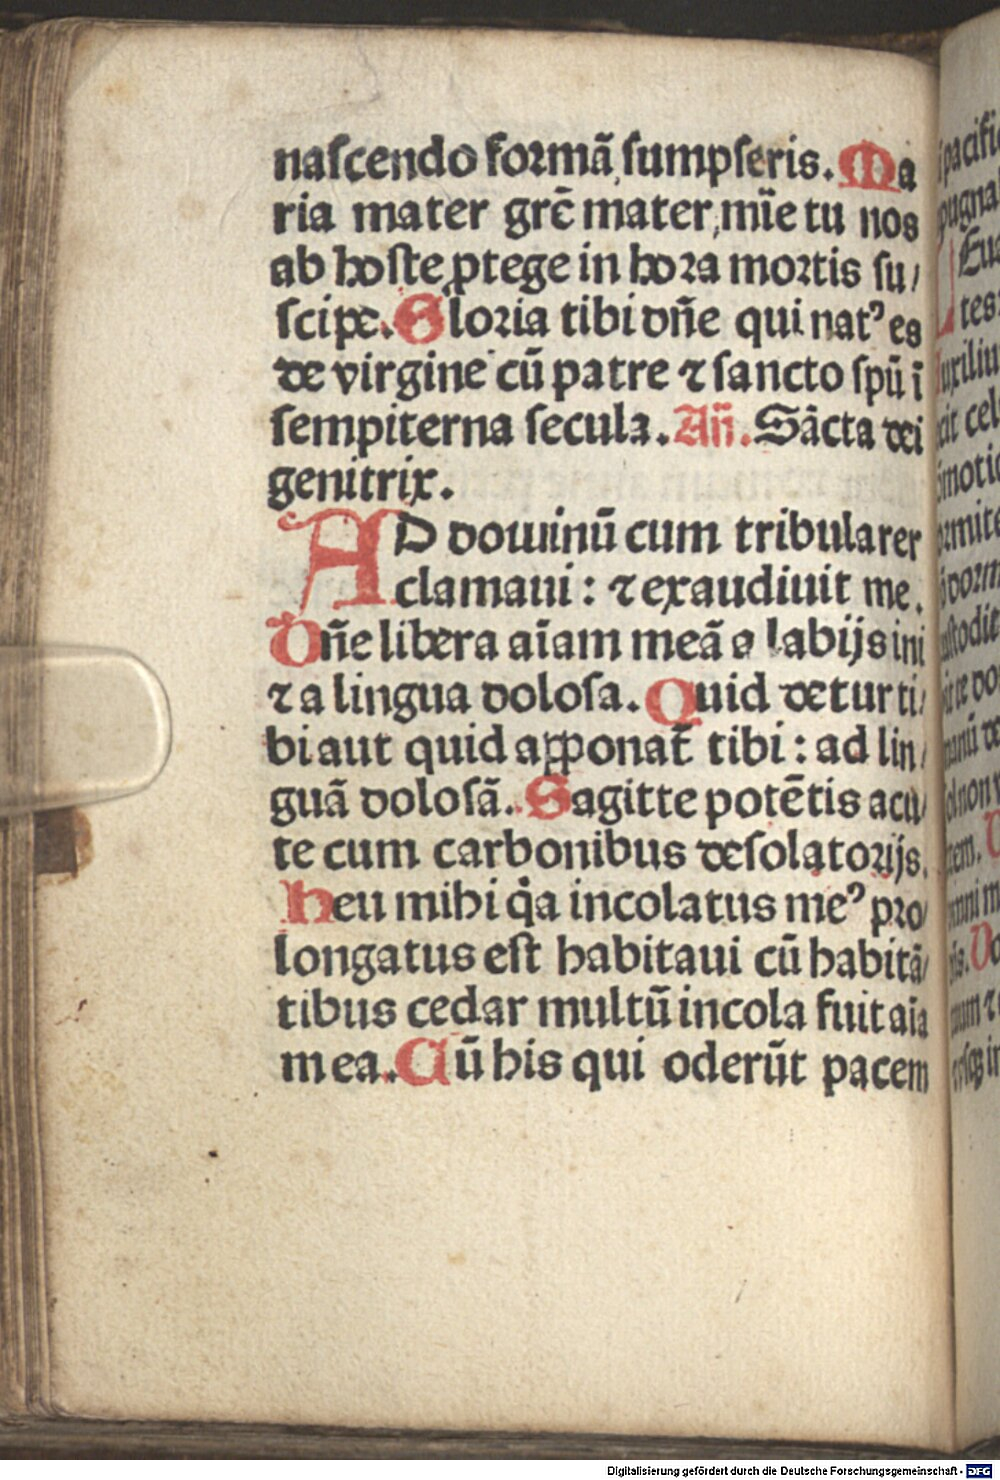 naſcendo formã ſumpſeris. Ma
ria mater grẽ mater mĩe tu nos
ab hoſte ꝓtege in hora mortis ſu/
ſcipe. Gloria tibi dñe qui natꝰ es
de virgine cũ patre ⁊ ſancto ſpũ ĩ
ſempiterna ſecula. Añ. Sãcta dei
genitrix.
AD dominũ cum tribularer
clamaui: ⁊ exaudiuit me.
Dñe libera aĩam meã a labijs ini
⁊ a lingua doloſa. Quid detur ti/
bi aut quid apponat̃ tibi: ad lin/
guã doloſã. Sagitte potẽtis acu/
te cum carbonibus deſolatorijs.
Heu mihi q̃a incolatus meꝰ pro/
longatus eſt habitaui cũ habitã/
tibus cedar multũ incola fuit aĩa
mea. Cũ his qui oderũt pacem